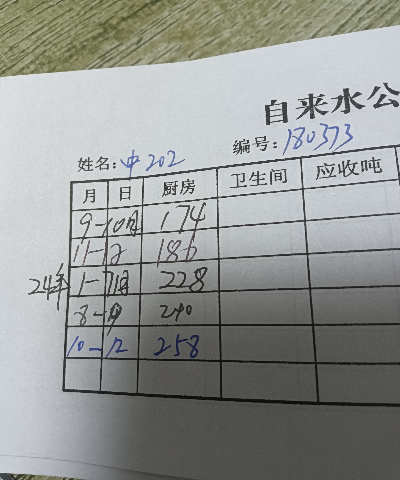 自来水公
姓名:中202 编号:180373
月 日 厨房 卫生间 应收吨
9-10月 174
11-12 186
24年 1-7月 228
8-9 240
10-12 258